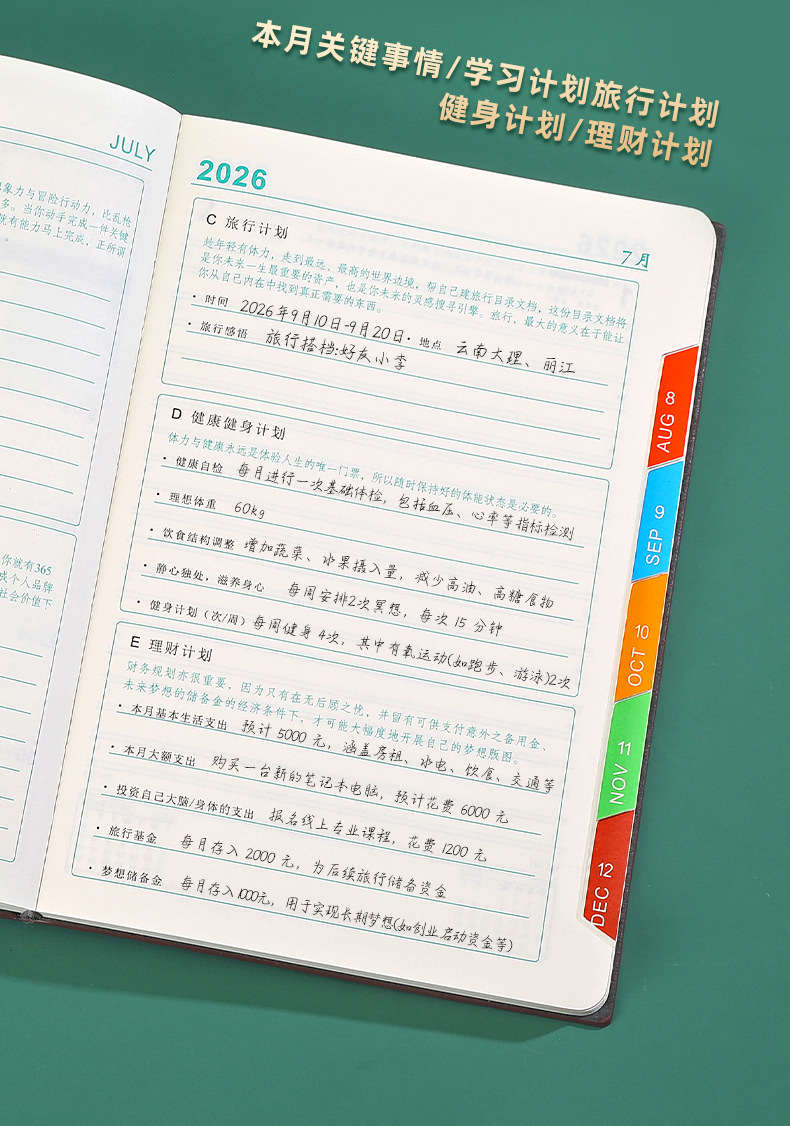 本月关键事情/学习计划旅行计划
健身计划/理财计划
JULY
象力与冒险行动力，比乱枪
多。当你动手完成一件关键
就有能力马上完成，正所谓
。
你就有365
成个人品牌
社会价值下
2026
7月
C 旅行计划
趁年轻有体力，走到最远、最高的世界边境，帮自己建旅行目录文档，这份目录文档将
是你未来一生最重要的资产，也是你未来的灵感搜寻引擎。旅行，最大的意义在于能让
你从自己内在中找到真正需要的东西。
· 时间 2026年9月10日-9月20日 · 地点 云南大理、丽江
· 旅行感悟 旅行搭档:好友小李
D 健康健身计划
体力与健康永远是体验人生的唯一门票，所以随时保持好的体能状态是必要的。
· 健康自检 每月进行一次基础体检，包括血压、心率等指标检测
· 理想体重 60kg
· 饮食结构调整 增加蔬菜、水果摄入量，减少高油、高糖食物
· 静心独处，滋养身心 每周安排2次冥想，每次15分钟
· 健身计划（次/周） 每周健身4次，其中有氧运动(如跑步、游泳)2次
E 理财计划
财务规划亦很重要，因为只有在无后顾之忧，并留有可供支付意外之备用金、
未来梦想的储备金的经济条件下，才可能大幅度地开展自己的梦想版图。
· 本月基本生活支出 预计5000元，涵盖房租、水电、饮食、交通等
· 本月大额支出 购买一台新的笔记本电脑，预计花费6000元
· 投资自己大脑/身体的支出 报名线上专业课程，花费1200元
· 旅行基金 每月存入2000元，为后续旅行储备资金
· 梦想储备金 每月存入1000元，用于实现长期梦想(如创业启动资金等)
AUG 8
SEP 9
OCT 10
NOV 11
DEC 12